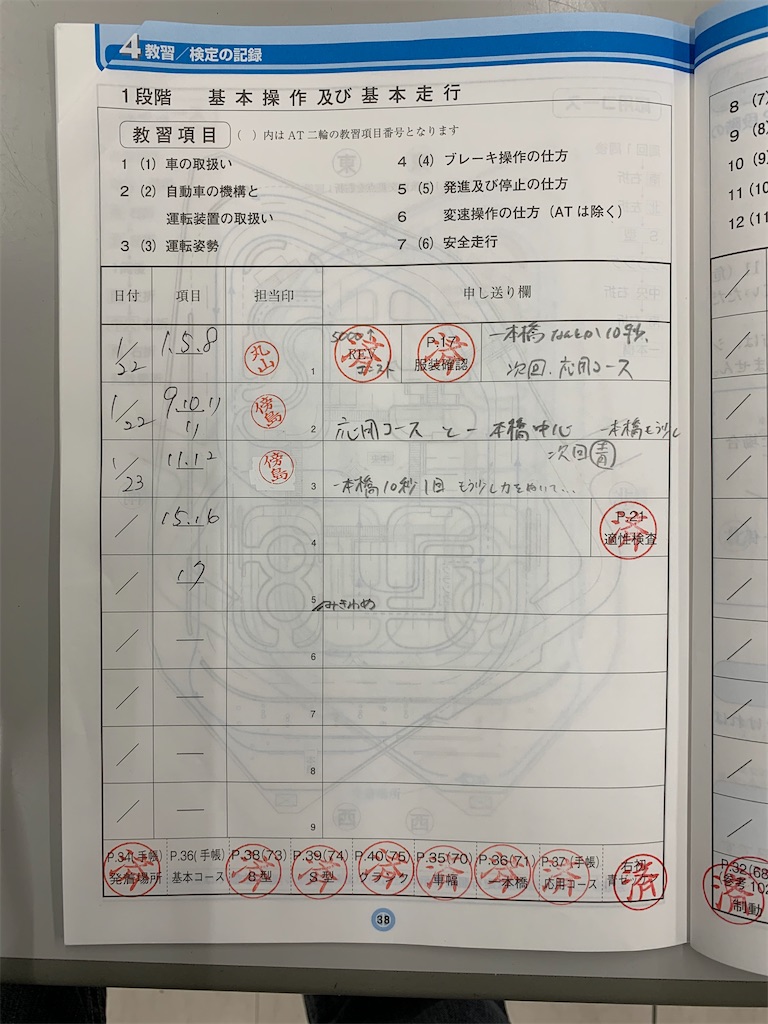 4 教習/検定の記録
1段階 基本操作及び基本走行
教習項目 ( )内はAT二輪の教習項目番号となります
1 (1) 車の取扱い
2 (2) 自動車の機構と
運転装置の取扱い
3 (3) 運転姿勢
4 (4) ブレーキ操作の仕方
5 (5) 発進及び停止の仕方
6 変速操作の仕方(ATは除く)
7 (6) 安全走行
日付 項目 担当印 申し送り欄
1/22 1.5.8 丸山 1
5000↑
REV
済
P.17
服装確認
済
一本橋なんとか10秒、
次回、応用コース
1/22 9.10.11 傍島 2
応用コースと一本橋中心 一本橋もう少し
次回 青
1/23 11.12 傍島 3
一本橋10秒1回 もう少し力をぬいて...
/ 15.16 4
P.21
適性検査
済
/ 17 5
みきわめ
/ — 6
/ — 7
/ — 8
/ — 9
P.34(手帳)
発着場所
済
P.36(手帳)
基本コース
P.38(73)
8型
済
P.39(74)
S型
済
P.40(75)
クランク
済
P.35(70)
車幅
済
P.36(71)
一本橋
済
P.37(手帳)
応用コース
済
済
38
8 (7)
9 (8)
10 (9)
11 (10
12 (11
P.32(68
参考102
制動
済